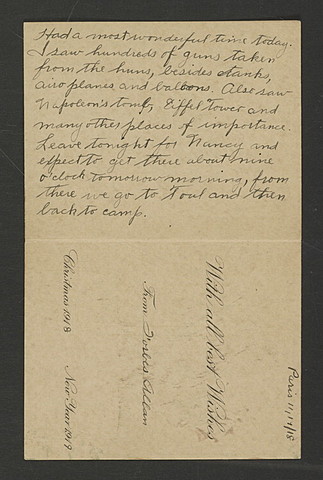 Had a most wonderful time today.
I saw hundreds of guns taken
from the huns, besides tanks,
airo planes and baloons. Also saw
Napoleon's tomb, Eiffel Tower and
many other places of importance.
Leave tonight for Nancy and
expect to get there about nine
o'clock tomorrow morning, from
there we go to Toul and then
back to camp.
Paris 11/17/18
With all best Wishes
From Allan
Christmas 1918 New Year 1919